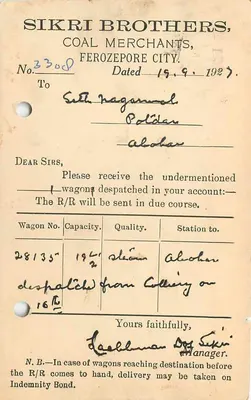 SIKRI BROTHERS,
COAL MERCHANTS,
FEROZEPORE CITY.
No. 3308 Dated 19.9.1927
To
Seth
Potdar
Abohar
DEAR SIRS,
Please receive the undermentioned
1 wagons despatched in your account:—
The R/R will be sent in due course.
Wagon No. Capacity. Quality. Station to.
28135 19 1/2 steam Abohar
despatched from Colliery on
16th
Yours faithfully,
Lachhman Das Sikri
Manager.
N. B.—In case of wagons reaching destination before
the R/R comes to hand, delivery may be taken on
Indemnity Bond.